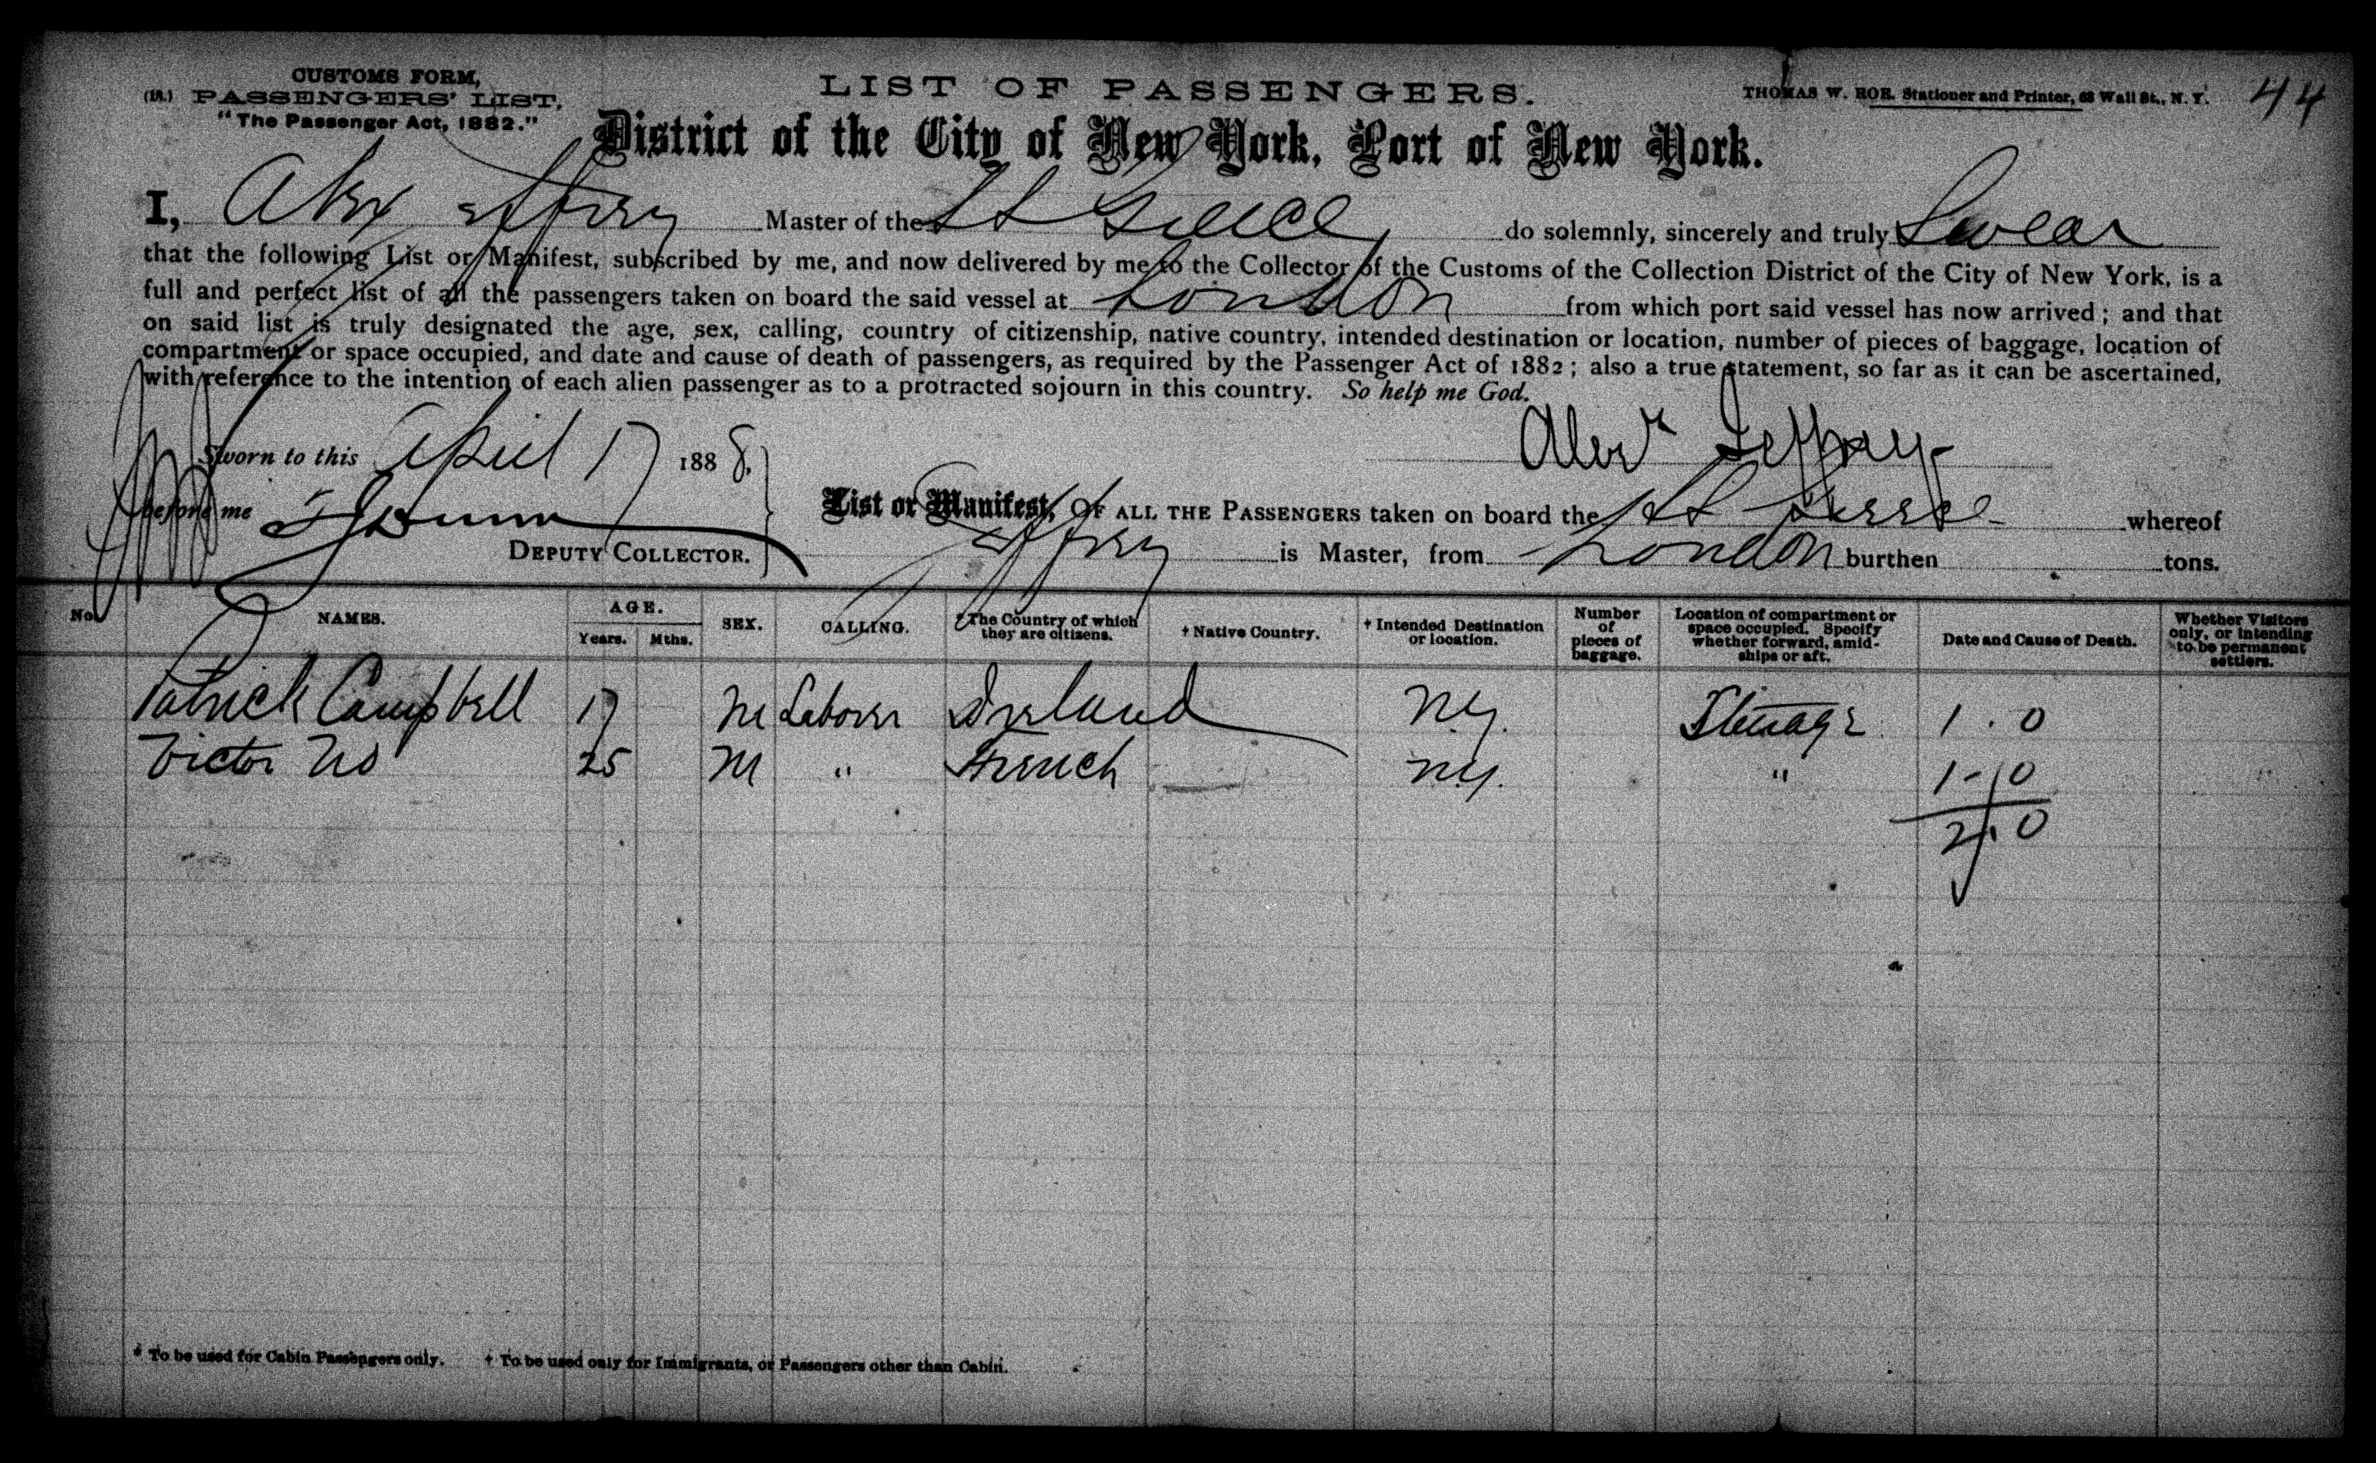 CUSTOMS FORM,
(18.) PASSENGERS' LIST,
"The Passenger Act, 1882."
LIST OF PASSENGERS.
THOMAS W. ROE. Stationer and Printer, 68 Wall St., N. Y.
44
District of the City of New York, Port of New York.
I, Alex Jeffrey Master of the SS Greece do solemnly, sincerely and truly Swear
that the following List or Manifest, subscribed by me, and now delivered by me to the Collector of the Customs of the Collection District of the City of New York, is a
full and perfect list of all the passengers taken on board the said vessel at London from which port said vessel has now arrived; and that
on said list is truly designated the age, sex, calling, country of citizenship, native country, intended destination or location, number of pieces of baggage, location of
compartment or space occupied, and date and cause of death of passengers, as required by the Passenger Act of 1882; also a true statement, so far as it can be ascertained,
with reference to the intention of each alien passenger as to a protracted sojourn in this country. So help me God.
Sworn to this April 17 1888.
Alexr Jeffrey
before me
DEPUTY COLLECTOR.
List or Manifest, OF ALL THE PASSENGERS taken on board the SS Greece whereof
Jeffrey is Master, from London burthen tons.
No. NAMES. AGE. Years. Mths. SEX. CALLING. † The Country of which they are citizens. † Native Country. † Intended Destination or location. Number of pieces of baggage. Location of compartment or space occupied. Specify whether forward, amidships or aft. Date and Cause of Death. Whether Visitors only, or intending to be permanent settlers.
Patrick Campbell 17 M Laborer Ireland N.Y. Steerage 1.0
Victor 25 M " French N.Y. " 1-0
2.0
* To be used for Cabin Passengers only. † To be used only for Immigrants, or Passengers other than Cabin.